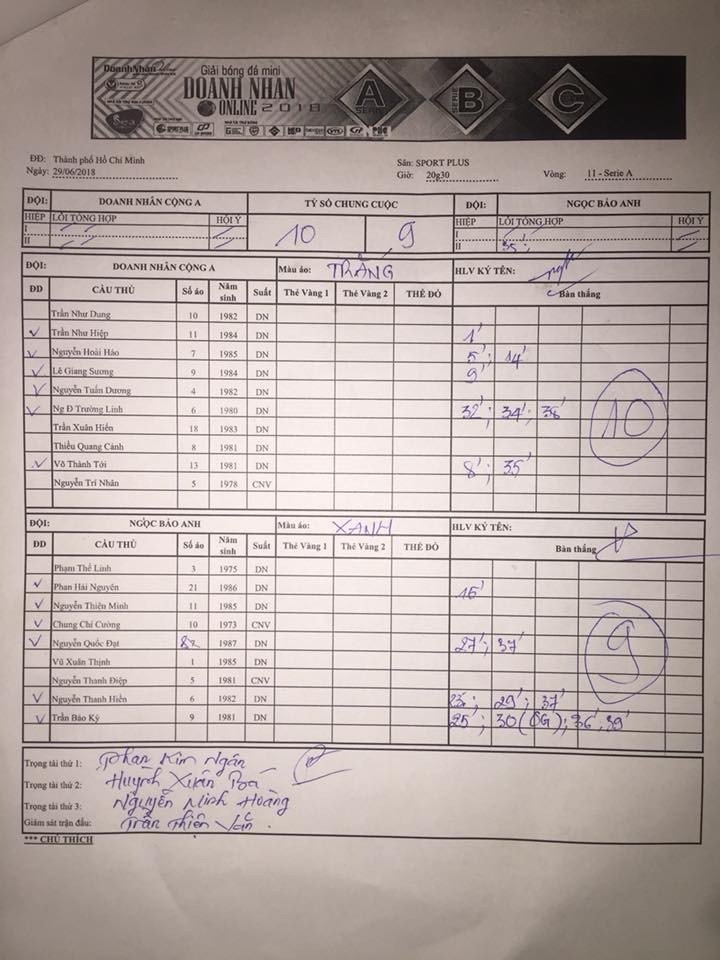 DoanhNhân
Giải bóng đá mini
DOANH NHÂN
ONLINE 2018
A
SERIE
B
SERIE
C
ĐĐ: Thành phố Hồ Chí Minh Sân: SPORT PLUS
Ngày: 29/06/2018 Giờ: 20g30 Vòng: 11 - Serie A
ĐỘI: DOANH NHÂN CỘNG A TỶ SỐ CHUNG CUỘC ĐỘI: NGỌC BẢO ANH
HIỆP LỖI TỔNG HỢP HỘI Ý 10 9 HIỆP LỖI TỔNG HỢP HỘI Ý
I I
II II 35'
ĐỘI: DOANH NHÂN CỘNG A Màu áo: TRẮNG HLV KÝ TÊN:
ĐD CẦU THỦ Số áo Năm sinh Suất Thẻ Vàng 1 Thẻ Vàng 2 THẺ ĐỎ Bàn thắng
Trần Như Dung 10 1982 DN
✓ Trần Như Hiệp 11 1984 DN 1'
✓ Nguyễn Hoài Háo 7 1985 DN 5'; 14'
✓ Lê Giang Sương 9 1984 DN 9'
✓ Nguyễn Tuấn Dương 4 1982 DN
✓ Ng Đ Trường Linh 6 1980 DN 32'; 34'; 38' 10
Trần Xuân Hiến 18 1983 DN
Thiều Quang Cảnh 8 1981 DN
✓ Võ Thành Tới 13 1981 DN 8'; 35'
Nguyễn Trí Nhân 5 1978 CNV
ĐỘI: NGỌC BẢO ANH Màu áo: XANH HLV KÝ TÊN:
ĐD CẦU THỦ Số áo Năm sinh Suất Thẻ Vàng 1 Thẻ Vàng 2 THẺ ĐỎ Bàn thắng
Phạm Thế Linh 3 1975 DN
✓ Phan Hải Nguyên 21 1986 DN 15'
✓ Nguyễn Thiện Minh 11 1985 DN
✓ Chung Chí Cường 10 1973 CNV
✓ Nguyễn Quốc Đạt 1987 DN 27'; 37' 9
Vũ Xuân Thịnh 1 1985 DN
Nguyễn Thanh Điệp 5 1981 CNV
✓ Nguyễn Thanh Hiền 6 1982 DN 23'; 29'; 37'
✓ Trần Bảo Ký 9 1981 DN 25'; 30(OG); 36', 39'
Trọng tài thứ 1: Phan Kim Ngân
Trọng tài thứ 2: Huỳnh Xuân Ba
Trọng tài thứ 3: Nguyễn Minh Hoàng
Giám sát trận đấu: Trần Thiên Vấn
*** CHÚ THÍCH